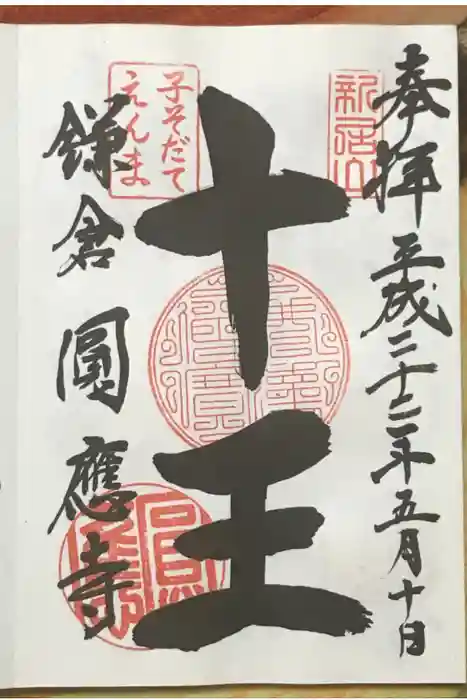 奉拝 平成二十二年五月十日
新居山
十王
子そだて
えんま
鎌倉圓應寺